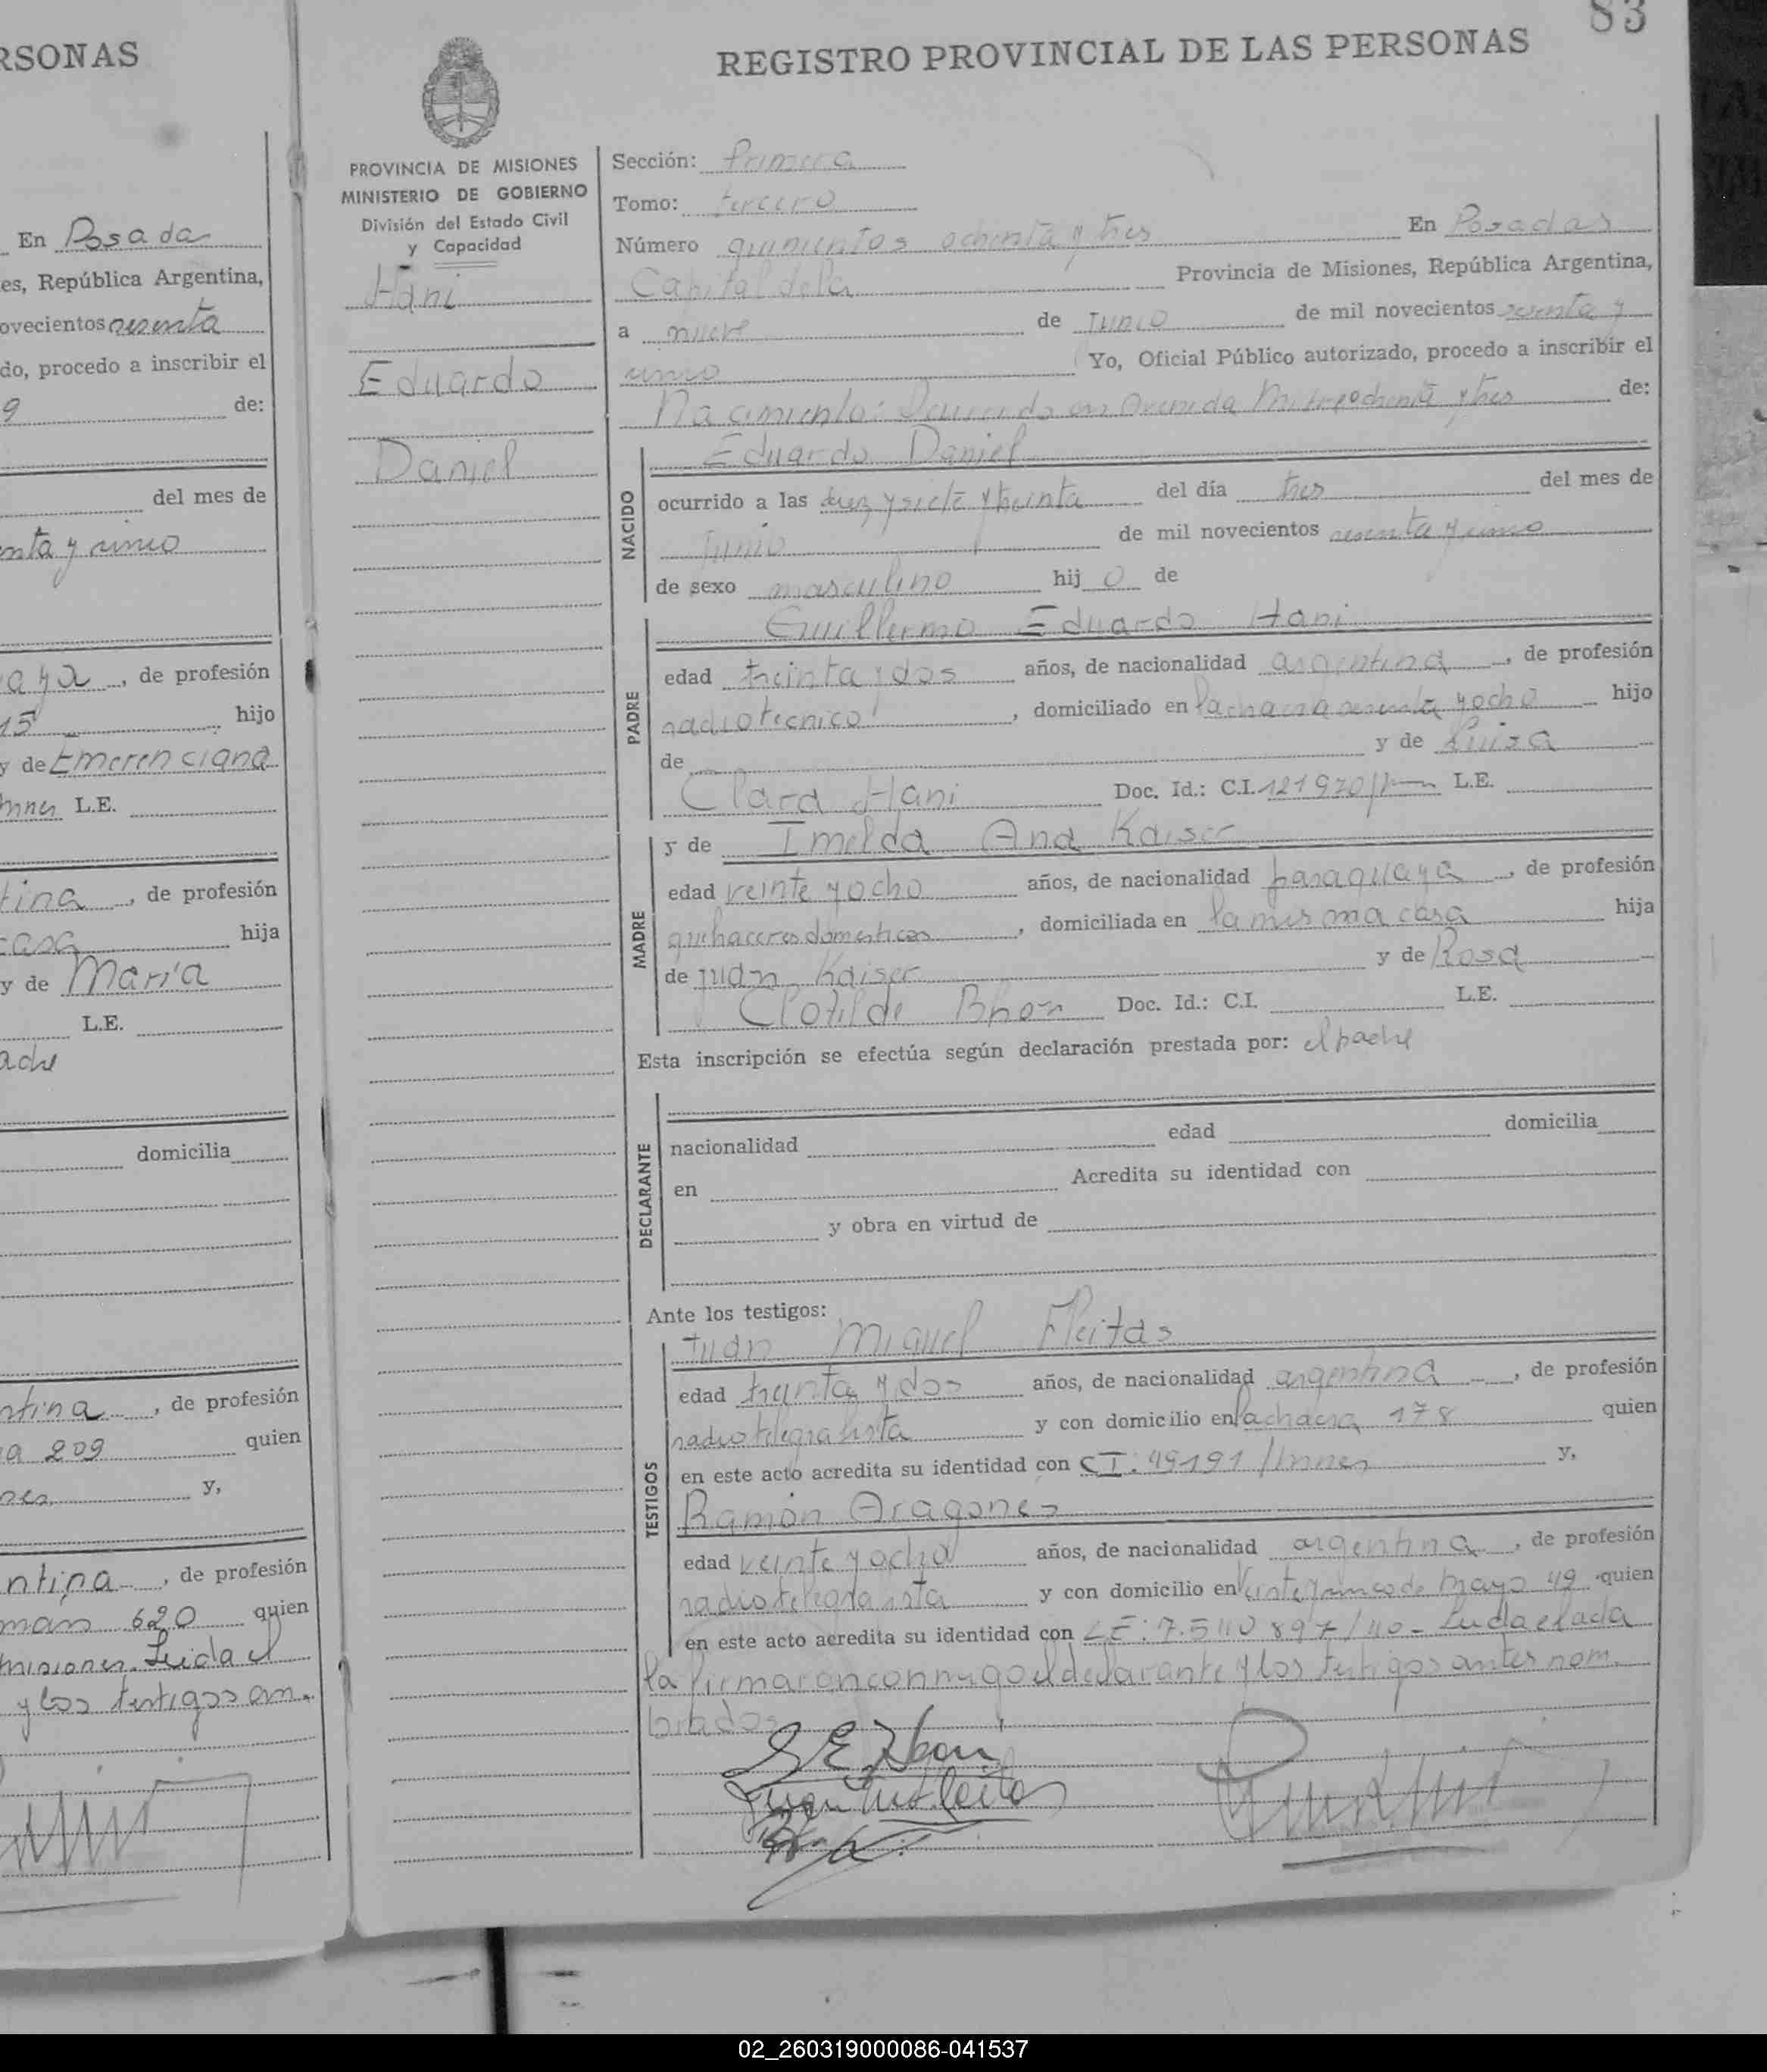 RSONAS
En Posada
es, República Argentina,
ovecientos sesenta
do, procedo a inscribir el
9 de:
del mes de
nta y uno
aya, de profesión
15 hijo
y de Emerenciana
L.E.
tina, de profesión
casa hija
y de Maria
L.E.
adre
domicilia
ntina, de profesión
a 209 quien
y,
ntina, de profesión
man 620 quien
misiones. Leida el
y los testigos an.
83
REGISTRO PROVINCIAL DE LAS PERSONAS
PROVINCIA DE MISIONES
MINISTERIO DE GOBIERNO
División del Estado Civil
y Capacidad
Hani
Eduardo
Daniel
Sección: Primera
Tomo: tercero
Número quinientos ochenta y tres En Posadas
Capital de la Provincia de Misiones, República Argentina,
a nueve de Junio de mil novecientos sesenta y
uno Yo, Oficial Público autorizado, procedo a inscribir el
Nacimiento: Ocurrido en Avenida Mitre ochenta y tres de:
NACIDO
Eduardo Daniel
ocurrido a las diez y siete y treinta del día tres del mes de
Junio de mil novecientos sesenta y uno
de sexo masculino hijo de
PADRE
Guillermo Eduardo Hani
edad treinta y dos años, de nacionalidad argentina, de profesión
radiotecnico, domiciliado en la chacra sesenta y ocho hijo
de y de Luisa
Clara Hani Doc. Id.: C.I. 121970 L.E.
MADRE
y de Imelda Ana Kaiser
edad veinte y ocho años, de nacionalidad paraguaya, de profesión
quehaceres domesticos, domiciliada en la misma casa hija
de Juan Kaiser y de Rosa
Clotilde Doc. Id.: C.I. L.E.
Esta inscripción se efectúa según declaración prestada por: el padre
DECLARANTE
nacionalidad edad domicilia
en Acredita su identidad con
y obra en virtud de
Ante los testigos:
TESTIGOS
Juan Miguel Fleitas
edad treinta y dos años, de nacionalidad argentina, de profesión
radiotelegrafista y con domicilio en la chacra 178 quien
en este acto acredita su identidad con CI: 49191/Mnes y,
Ramón Aragones
edad veinte y ocho años, de nacionalidad argentina, de profesión
radiotelegrafista y con domicilio en Veinte y cinco de Mayo 49 quien
en este acto acredita su identidad con LE: 7.540.897/40- Leida el acta
la firmaron conmigo el declarante y los testigos antes nom.
brados
02_260319000086-041537